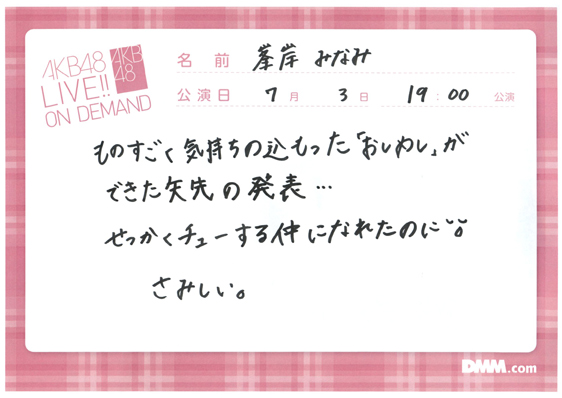 AKB48
LIVE!!
ON DEMAND
AKB
48
名前 峯岸 みなみ
公演日 7月 3日 19:00 公演
ものすごく気持ちの込もった「おしめし」が
できた矢先の発表…
せっかくチューする仲になれたのに
さみしい。
DMM.com